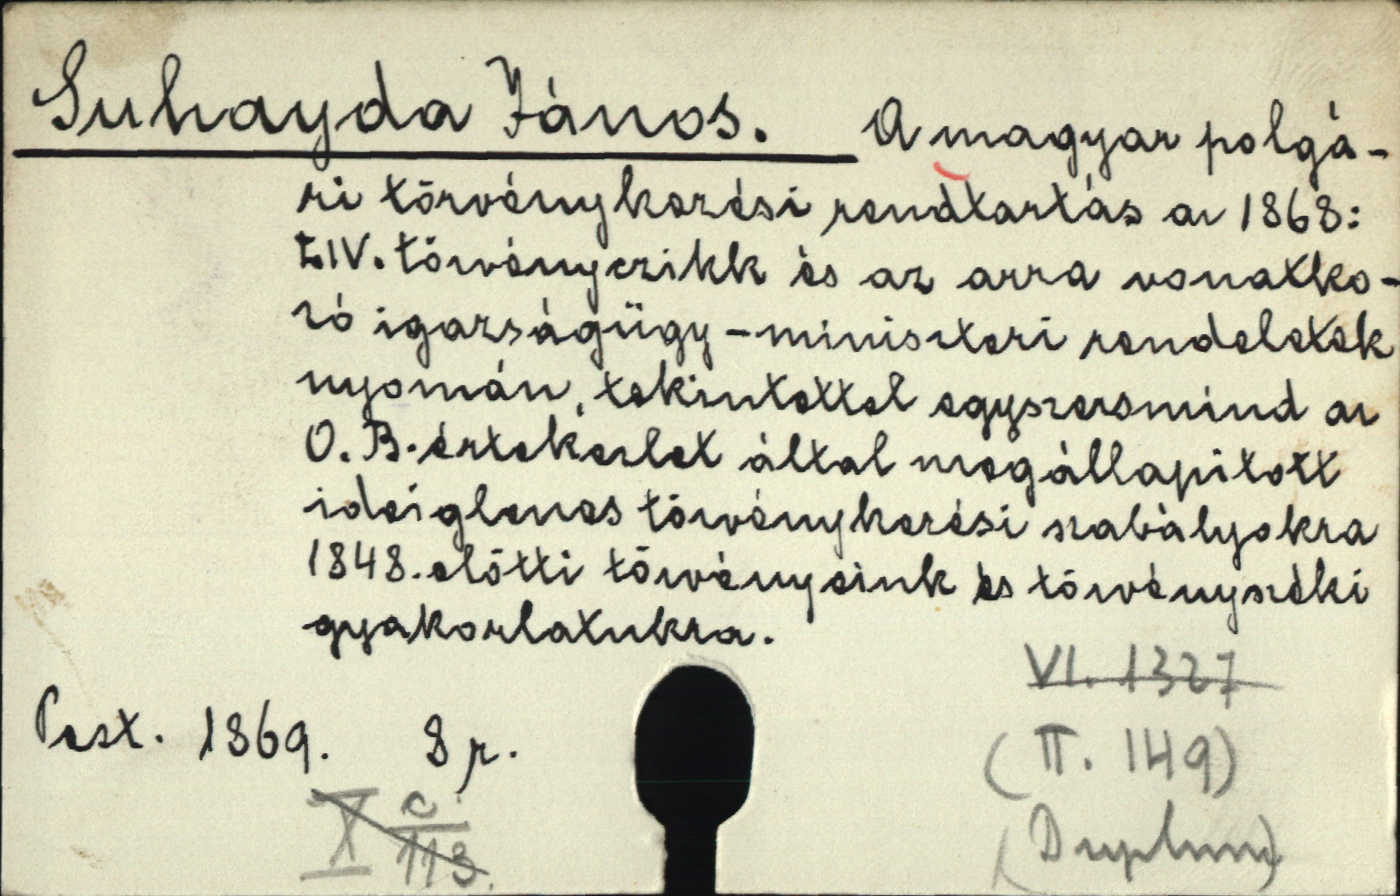 Suhayda János. A magyar polgá-
ri törvénykezési rendtartás az 1868:
LIV. törvényczikk és az arra vonatko-
zó igazságügy-miniszteri rendeletek
nyomán, tekintettel egyszersmind az
O. B. értekezlet által megállapitott
ideiglenes törvénykezési szabályokra
1848. előtti törvényeink és törvényszéki
gyakorlatukra.
VI. 1327
Pest. 1869. 8 r.
(II. 149)
X c/113.
(Duplum)